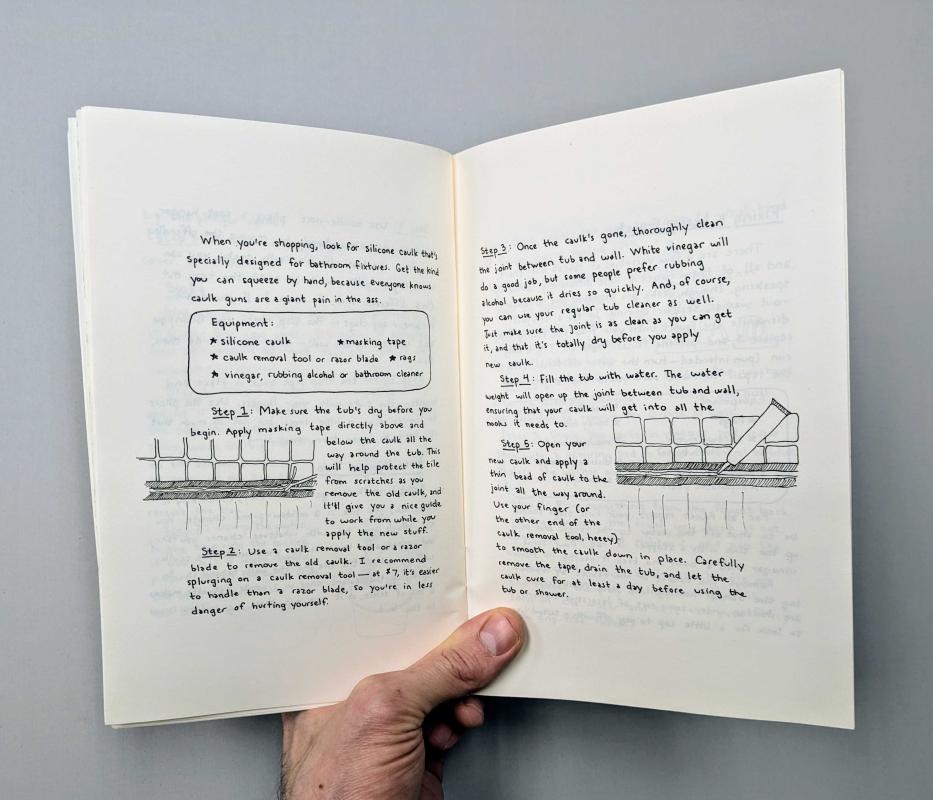 When you're shopping, look for silicone caulk that's
specially designed for bathroom fixtures. Get the kind
you can squeeze by hand, because everyone knows
caulk guns are a giant pain in the ass.
Equipment:
★ silicone caulk ★ masking tape
★ caulk removal tool or razor blade ★ rags
★ vinegar, rubbing alcohol or bathroom cleaner
Step 1: Make sure the tub's dry before you
begin. Apply masking tape directly above and
below the caulk all the
way around the tub. This
will help protect the tile
from scratches as you
remove the old caulk, and
it'll give you a nice guide
to work from while you
apply the new stuff.
Step 2: Use a caulk removal tool or a razor
blade to remove the old caulk. I recommend
splurging on a caulk removal tool — at $7, it's easier
to handle than a razor blade, so you're in less
danger of hurting yourself.
Step 3: Once the caulk's gone, thoroughly clean
the joint between tub and wall. White vinegar will
do a good job, but some people prefer rubbing
alcohol because it dries so quickly. And, of course,
you can use your regular tub cleaner as well.
Just make sure the joint is as clean as you can get
it, and that it's totally dry before you apply
new caulk.
Step 4: Fill the tub with water. The water
weight will open up the joint between tub and wall,
ensuring that your caulk will get into all the
nooks it needs to.
Step 5: Open your
new caulk and apply a
thin bead of caulk to the
joint all the way around.
Use your finger (or
the other end of the
caulk removal tool, heeey)
to smooth the caulk down in place. Carefully
remove the tape, drain the tub, and let the
caulk cure for at least a day before using the
tub or shower.